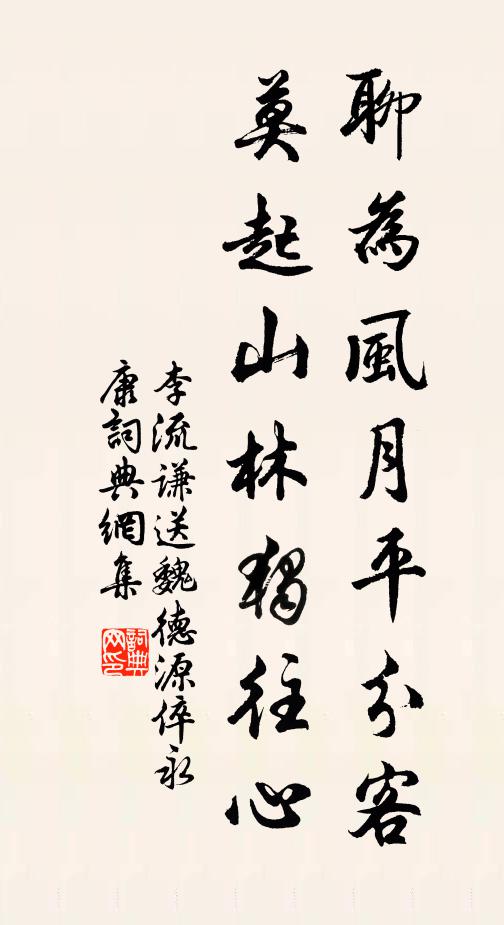 聊為風月平分客
莫起山林獨往心
李流謙送魏德源倅永
康詞典網集
詞典网印